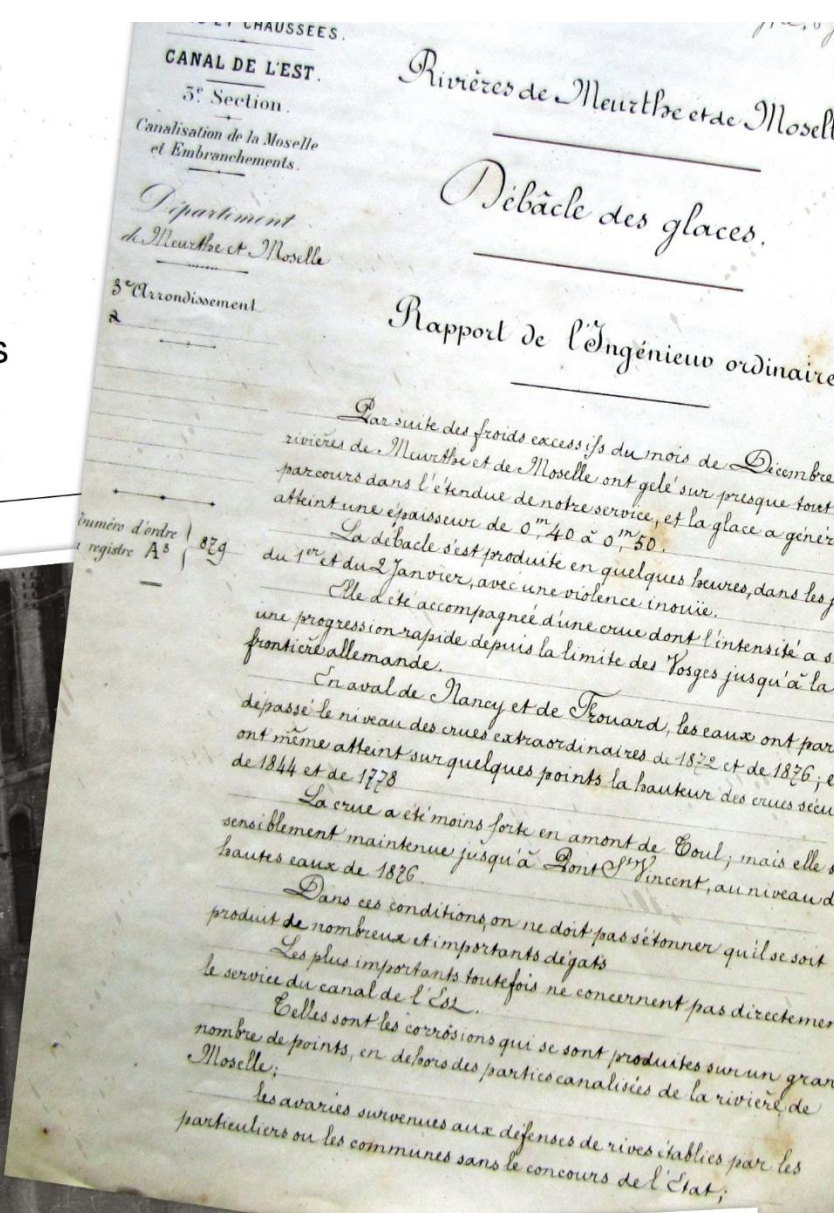 ET CHAUSSÉES.
CANAL DE L'EST.
3e Section.
Canalisation de la Moselle
et Embranchements.
Département
de Meurthe et Moselle
3e Arrondissement
numéro d'ordre
registre A3 879
s
Rivières de Meurthe et de Mosell
Débâcle des glaces.
Rapport de l'Ingénieur ordinaire
Par suite des froids excessifs du mois de Décembre
rivières de Meurthe et de Moselle ont gelé sur presque tout
parcours dans l'étendue de notre service, et la glace a génér
atteint une épaisseur de 0,m40 à 0,m50.
La débacle s'est produite en quelques heures, dans les j
du 1er et du 2 Janvier, avec une violence inouïe.
Elle a été accompagnée d'une crue dont l'intensité a s
une progression rapide depuis la limite des Vosges jusqu'à la
frontière allemande.
En aval de Nancy et de Frouard, les eaux ont par
dépassé le niveau des crues extraordinaires de 1872 et de 1876; e
ont même atteint sur quelques points la hauteur des crues sécu
de 1844 et de 1778
La crue a été moins forte en amont de Toul; mais elle s
sensiblement maintenue jusqu'à Pont St Vincent, au niveau d
hautes eaux de 1876.
Dans ces conditions, on ne doit pas s'étonner qu'il se soit
produit de nombreux et importants dégats
Les plus importants toutefois ne concernent pas directemen
le service du canal de l'Est.
Telles sont les corrosions qui se sont produites sur un gran
nombre de points, en dehors des parties canalisées de la rivière de
Moselle;
les avaries survenues aux défenses de rives établies par les
particuliers ou les communes sans le concours de l'Etat;